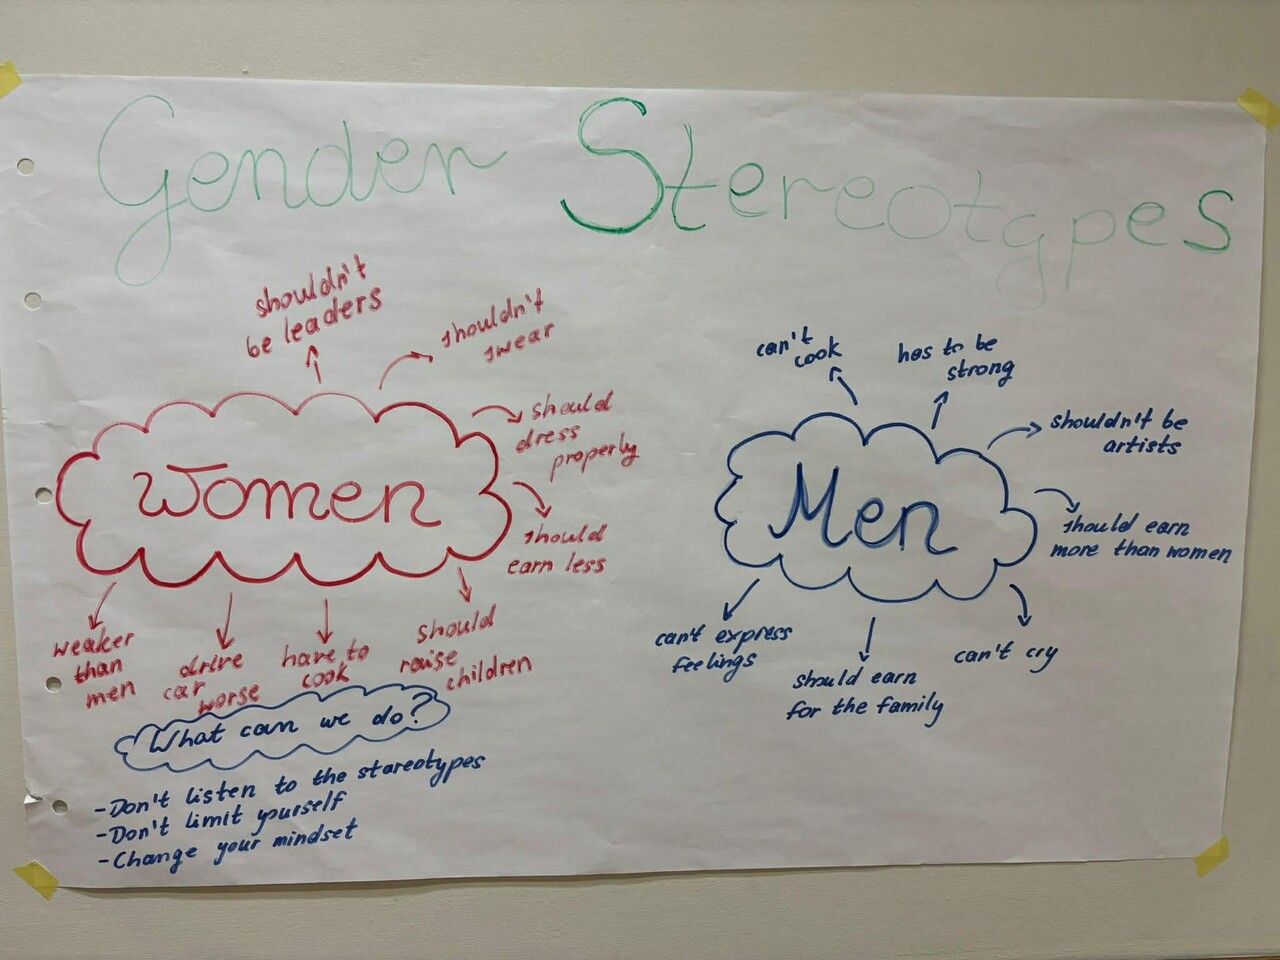 Gender Stereotypes
shouldn't
be leaders
shouldn't
swear
should
dress
properly
should
earn less
Women
weaker
than
men
drive
car
worse
have to
cook
should
raise
children
can't
cook
has to be
strong
shouldn't be
artists
should earn
more than women
Men
can't express
feelings
should earn
for the family
can't cry
What can we do?
-Don't listen to the stareotypes
-Don't limit yourself
-Change your mindset